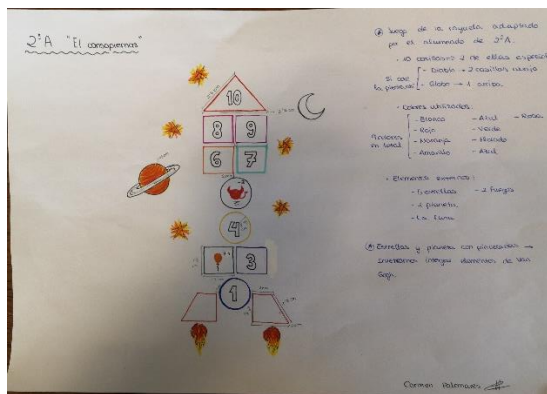 2ºA "El cansapiernas"
10
8 9
6 7
4
3
1
Juego de la rayuela adaptado
por el alumnado de 2ºA.
10 casillas y 2 de ellas especiales
Si cae
la piedra:
- Diablo → 2 casillas abajo
- Globo → 1 arriba.
- Colores utilizados:
- Blanco - Azul - Rosa
- Rojo - Verde
- Naranja - Morado
- Amarillo - Azul
en total
- Elementos externos:
- Estrellas - 2 fuegos
- 1 planeta
- La luna
Estrellas y planeta con
Intentamos integrar elementos de Van
Gogh.
Carmen Palomares